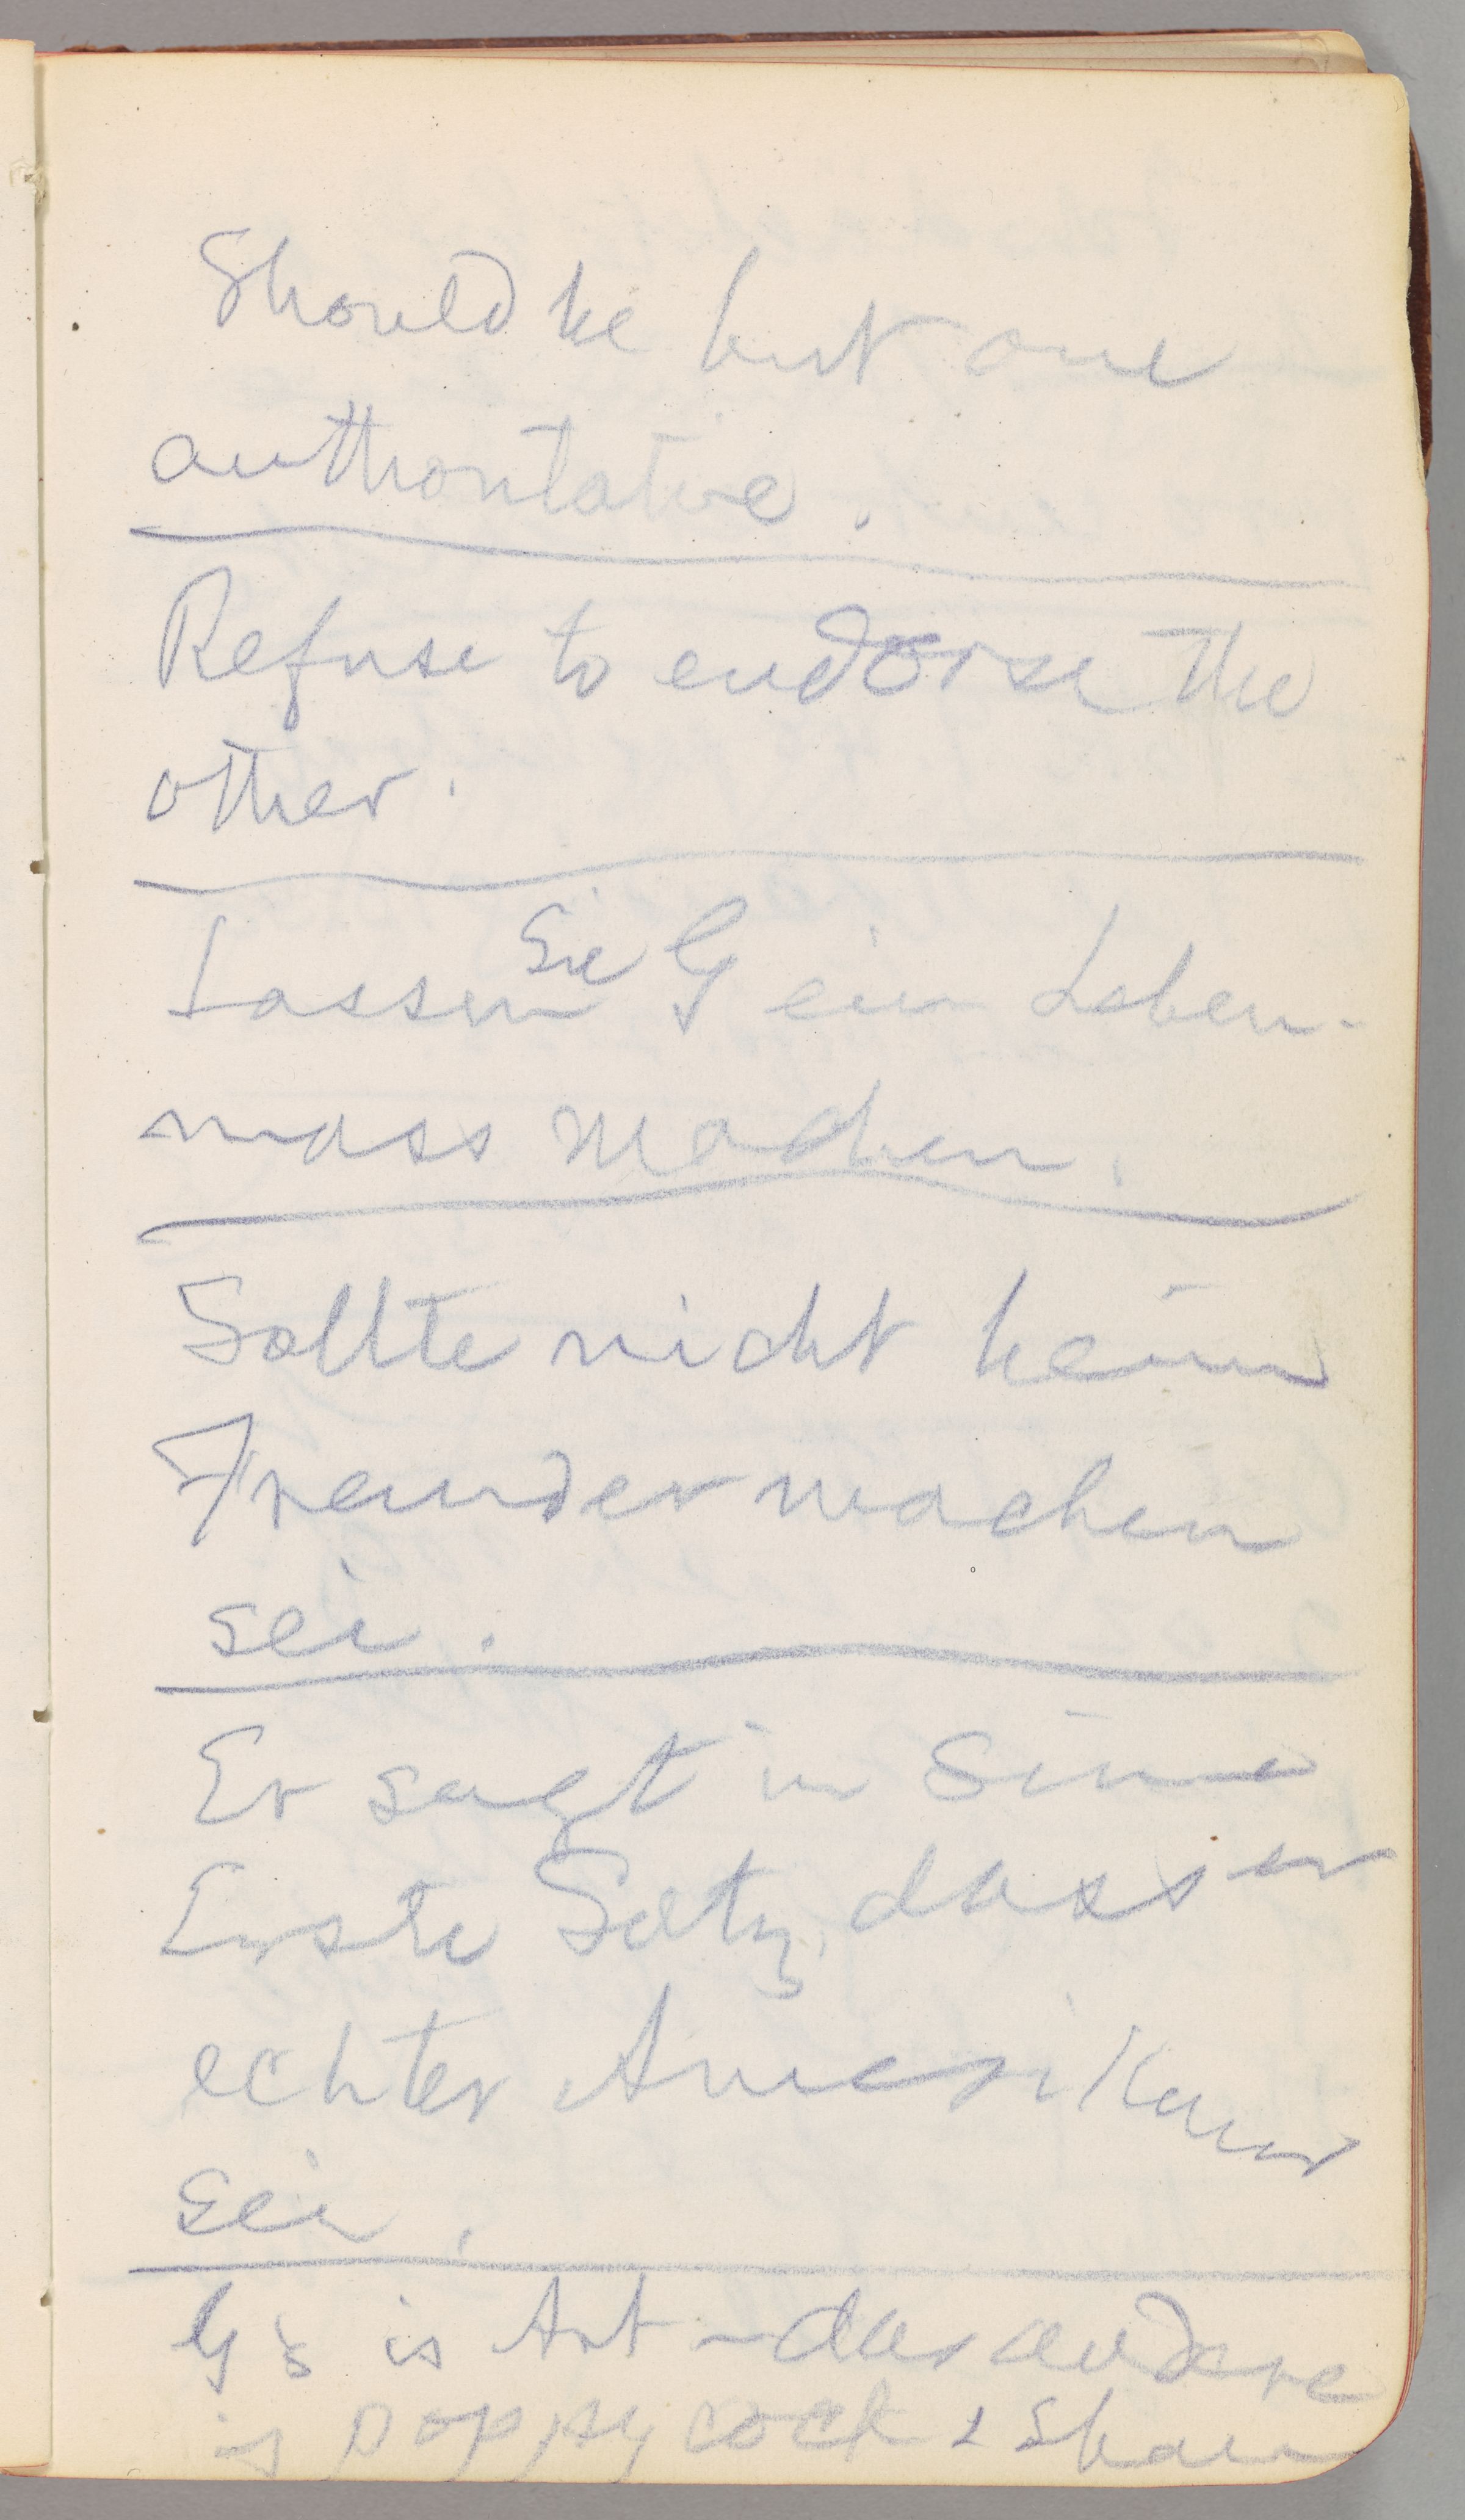 Should be but one
authoritative.
Refuse to endorse the
other.
Lassen Sie G ein Leben-
mass machen.
Sollte nicht kein
Fremder machen
sei.
Er sagt in Sine
Erste Satz, dass er
echter Amerikaner
sei.
G's is Art – der andere
is poppy cock & Sham